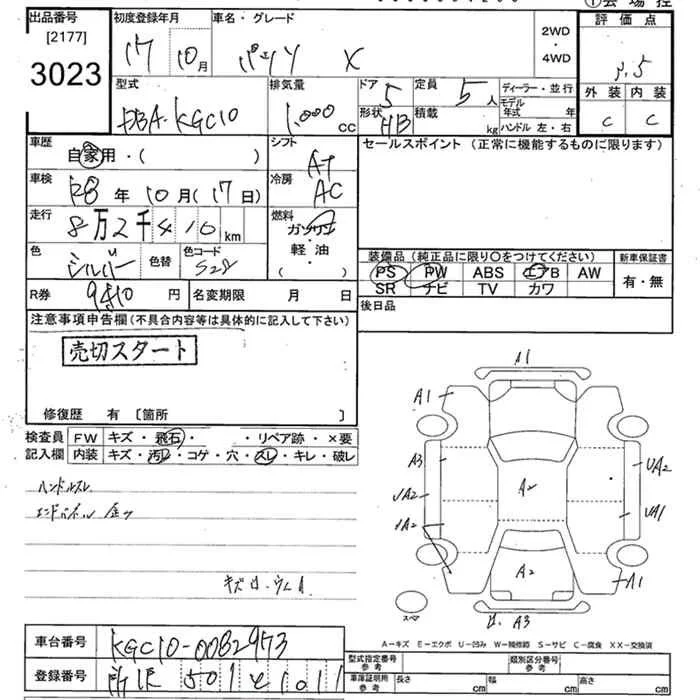 ①会場控
出品番号 初度登録年月 車名・グレード 2WD 評価点
[2177] ・
3023 17 10月 パッソ X 4WD 3.5
型式 排気量 ドア 5 定員 5人 ディーラー・並行 外装 内装
DBA-KGC10 1,000 CC 形状 HB 積載 kg モデル年式 年 C C
ハンドル 左・右
車歴 自家用・( ) シフト AT セールスポイント(正常に機能するものに限ります)
車検 R8年10月(17日) 冷房 AC
走行 8万2千410km 燃料 ガソリン
色 シルバー 色替 色コード S28 軽油 装備品(純正品に限り〇をつけてください) 新車保証書
( ) PS PW ABS エアB AW 有・無
R券 9840円 名変期限 月 日 SR ナビ TV カワ
注意事項申告欄(不具合内容等は具体的に記入して下さい) 後日品
売切スタート
修復歴 有 〔箇所 〕
検査員 FW キズ・飛石・ ・リペア跡・×要
記入欄 内装 キズ・汚レ・コゲ・穴・スレ・キレ・破レ
ハンドルスレ
A1
A1
A3 UA2
A2
UA2
UA1
A2
A1
スペア
A3
A-キズ E-エクボ U-凹み W-補修跡 S-サビ C-腐食 XX-交換済
車台番号 KGC10-0082973
型式指定番号 参考 類別区分番号 参考
登録番号 所沢 501 と 1011
車庫証明用 参考 長さ cm 幅 cm 高さ cm